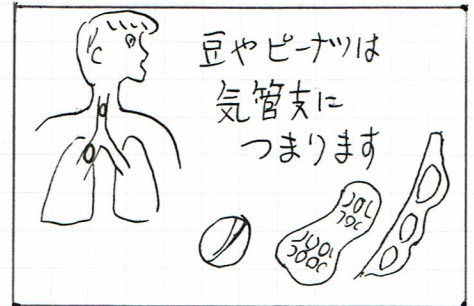 豆やピーナツは
気管支に
つまります